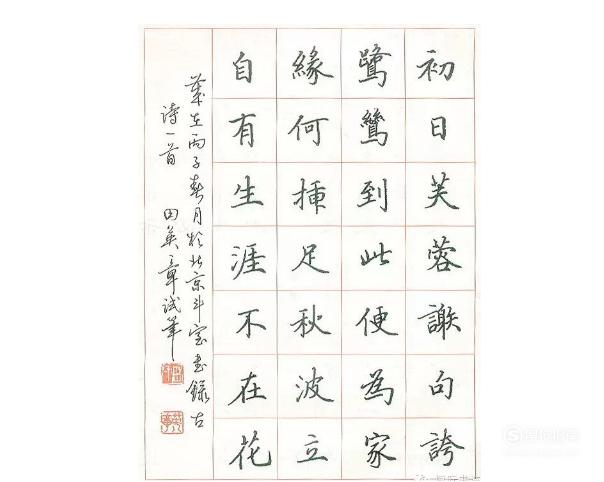 初日芙蓉謝句誇
鷺鷥到此便為家
緣何插足秋波立
自有生涯不在花
歲在丙子春月於北京斗室書錄古
诗一首 田英章試筆